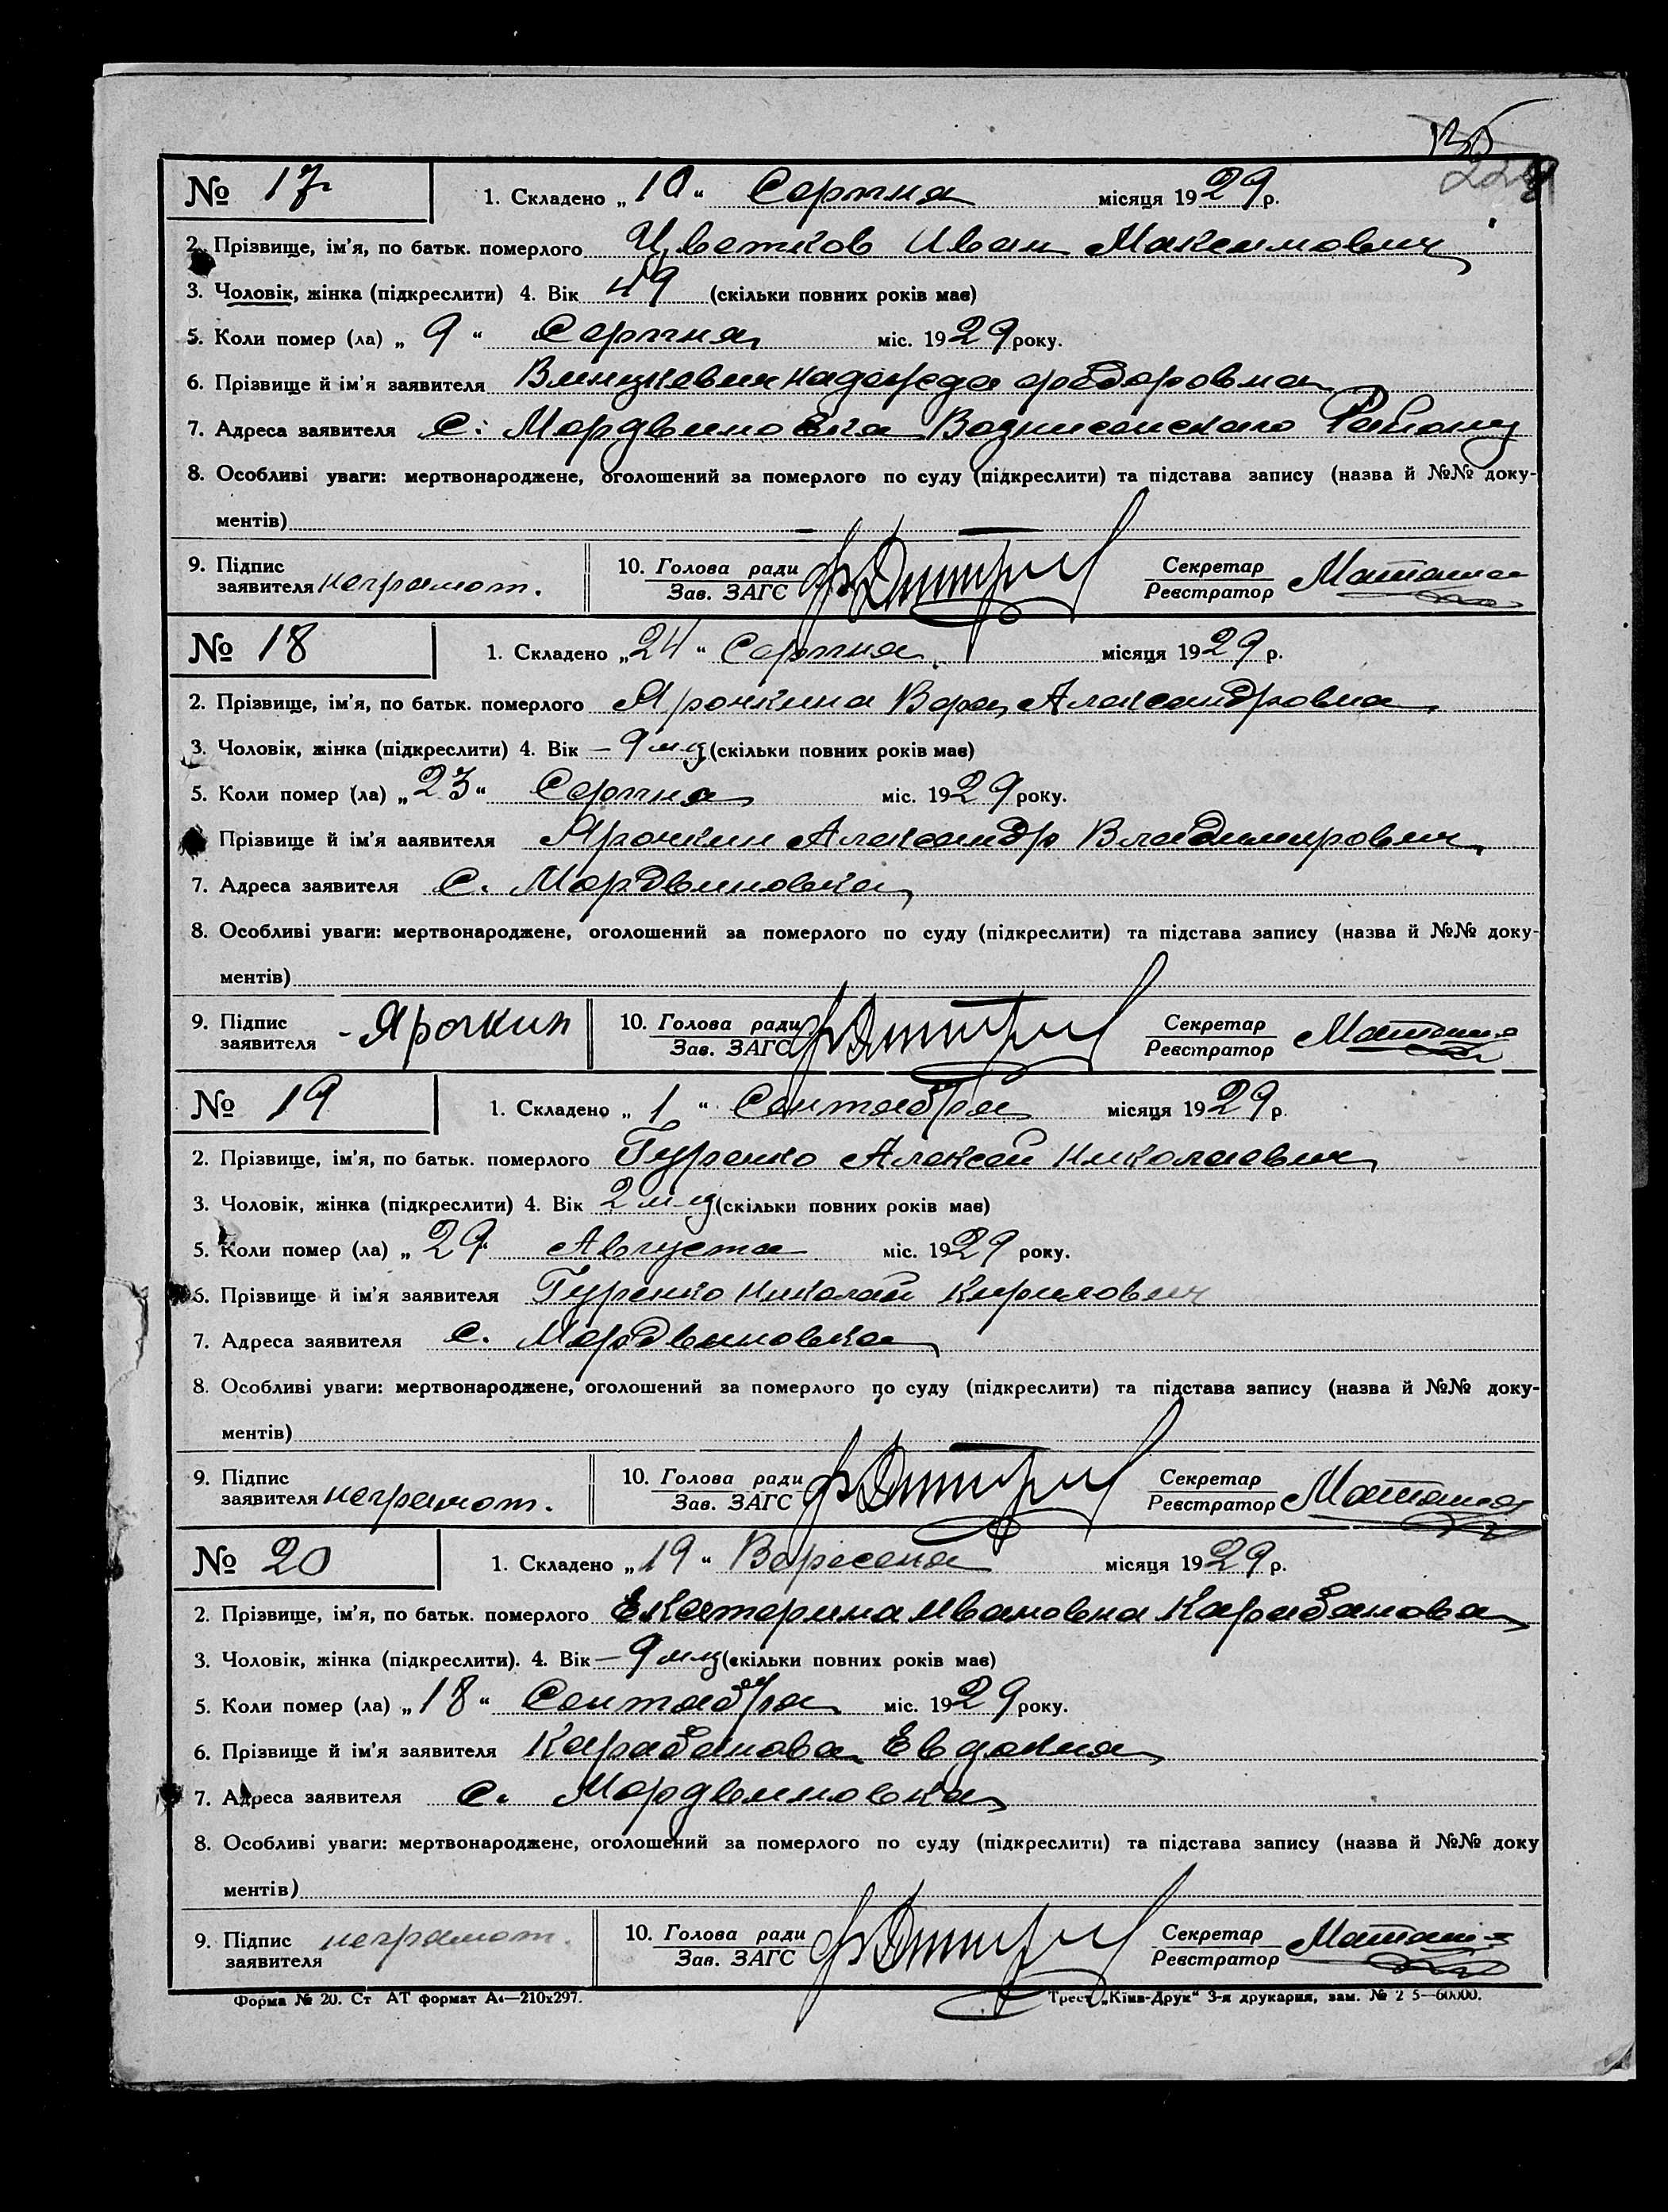 130
224
№ 17 1. Складено „10“ Серпня місяця 1929 р.
2. Прізвище, ім'я, по батьк. померлого Цветков Иван Максимович
3. Чоловік, жінка (підкреслити) 4. Вік 49 (скільки повних років має)
5. Коли помер (ла) „9“ Серпня міс. 1929 року.
6. Прізвище й ім'я заявителя Надежда Федоровна
7. Адреса заявителя С. Мордвиновка Вознисенского Району
8. Особливі уваги: мертвонароджене, оголошений за померлого по суду (підкреслити) та підстава запису (назва й №№ доку-
ментів)
9. Підпис заявителя неграмот. 10. Голова ради Зав. ЗАГС Секретар Реєстратор
№ 18 1. Складено „24“ Серпня місяця 1929 р.
2. Прізвище, ім'я, по батьк. померлого Ярочкина Вера Александровна
3. Чоловік, жінка (підкреслити) 4. Вік – 9 м-ц (скільки повних років має)
5. Коли помер (ла) „23“ Серпня міс. 1929 року.
Прізвище й ім'я заявителя Ярочкин Александр Владимирович
7. Адреса заявителя С. Мордвиновка
8. Особливі уваги: мертвонароджене, оголошений за померлого по суду (підкреслити) та підстава запису (назва й №№ доку-
ментів)
9. Підпис заявителя - Ярочкин 10. Голова ради Зав. ЗАГС Секретар Реєстратор
№ 19 1. Складено „1“ Сентября місяця 1929 р.
2. Прізвище, ім'я, по батьк. померлого Гуренко Алексей Николаевич
3. Чоловік, жінка (підкреслити) 4. Вік 2 м-ц (скільки повних років має)
5. Коли помер (ла) „29“ Августа міс. 1929 року.
6. Прізвище й ім'я заявителя Гуренко Николай Кирилович
7. Адреса заявителя С. Мордвиновка
8. Особливі уваги: мертвонароджене, оголошений за померлого по суду (підкреслити) та підстава запису (назва й №№ доку-
ментів)
9. Підпис заявителя неграмот. 10. Голова ради Зав. ЗАГС Секретар Реєстратор
№ 20 1. Складено „19“ Вересеня місяця 1929 р.
2. Прізвище, ім'я, по батьк. померлого Екатерина Ивановна Карабанова
3. Чоловік, жінка (підкреслити). 4. Вік – 9 м-ц (скільки повних років має)
5. Коли помер (ла) „18“ Сентября міс. 1929 року.
6. Прізвище й ім'я заявителя Карабанова Евдокия
7. Адреса заявителя С. Мордвиновка
8. Особливі уваги: мертвонароджене, оголошений за померлого по суду (підкреслити) та підстава запису (назва й №№ доку
ментів)
9. Підпис заявителя неграмот. 10. Голова ради Зав. ЗАГС Секретар Реєстратор
Форма № 20. Ст АТ формат А4—210х297. Трест „Київ-Друк“ 3-я друкарня, зам. № 2 5—60000.